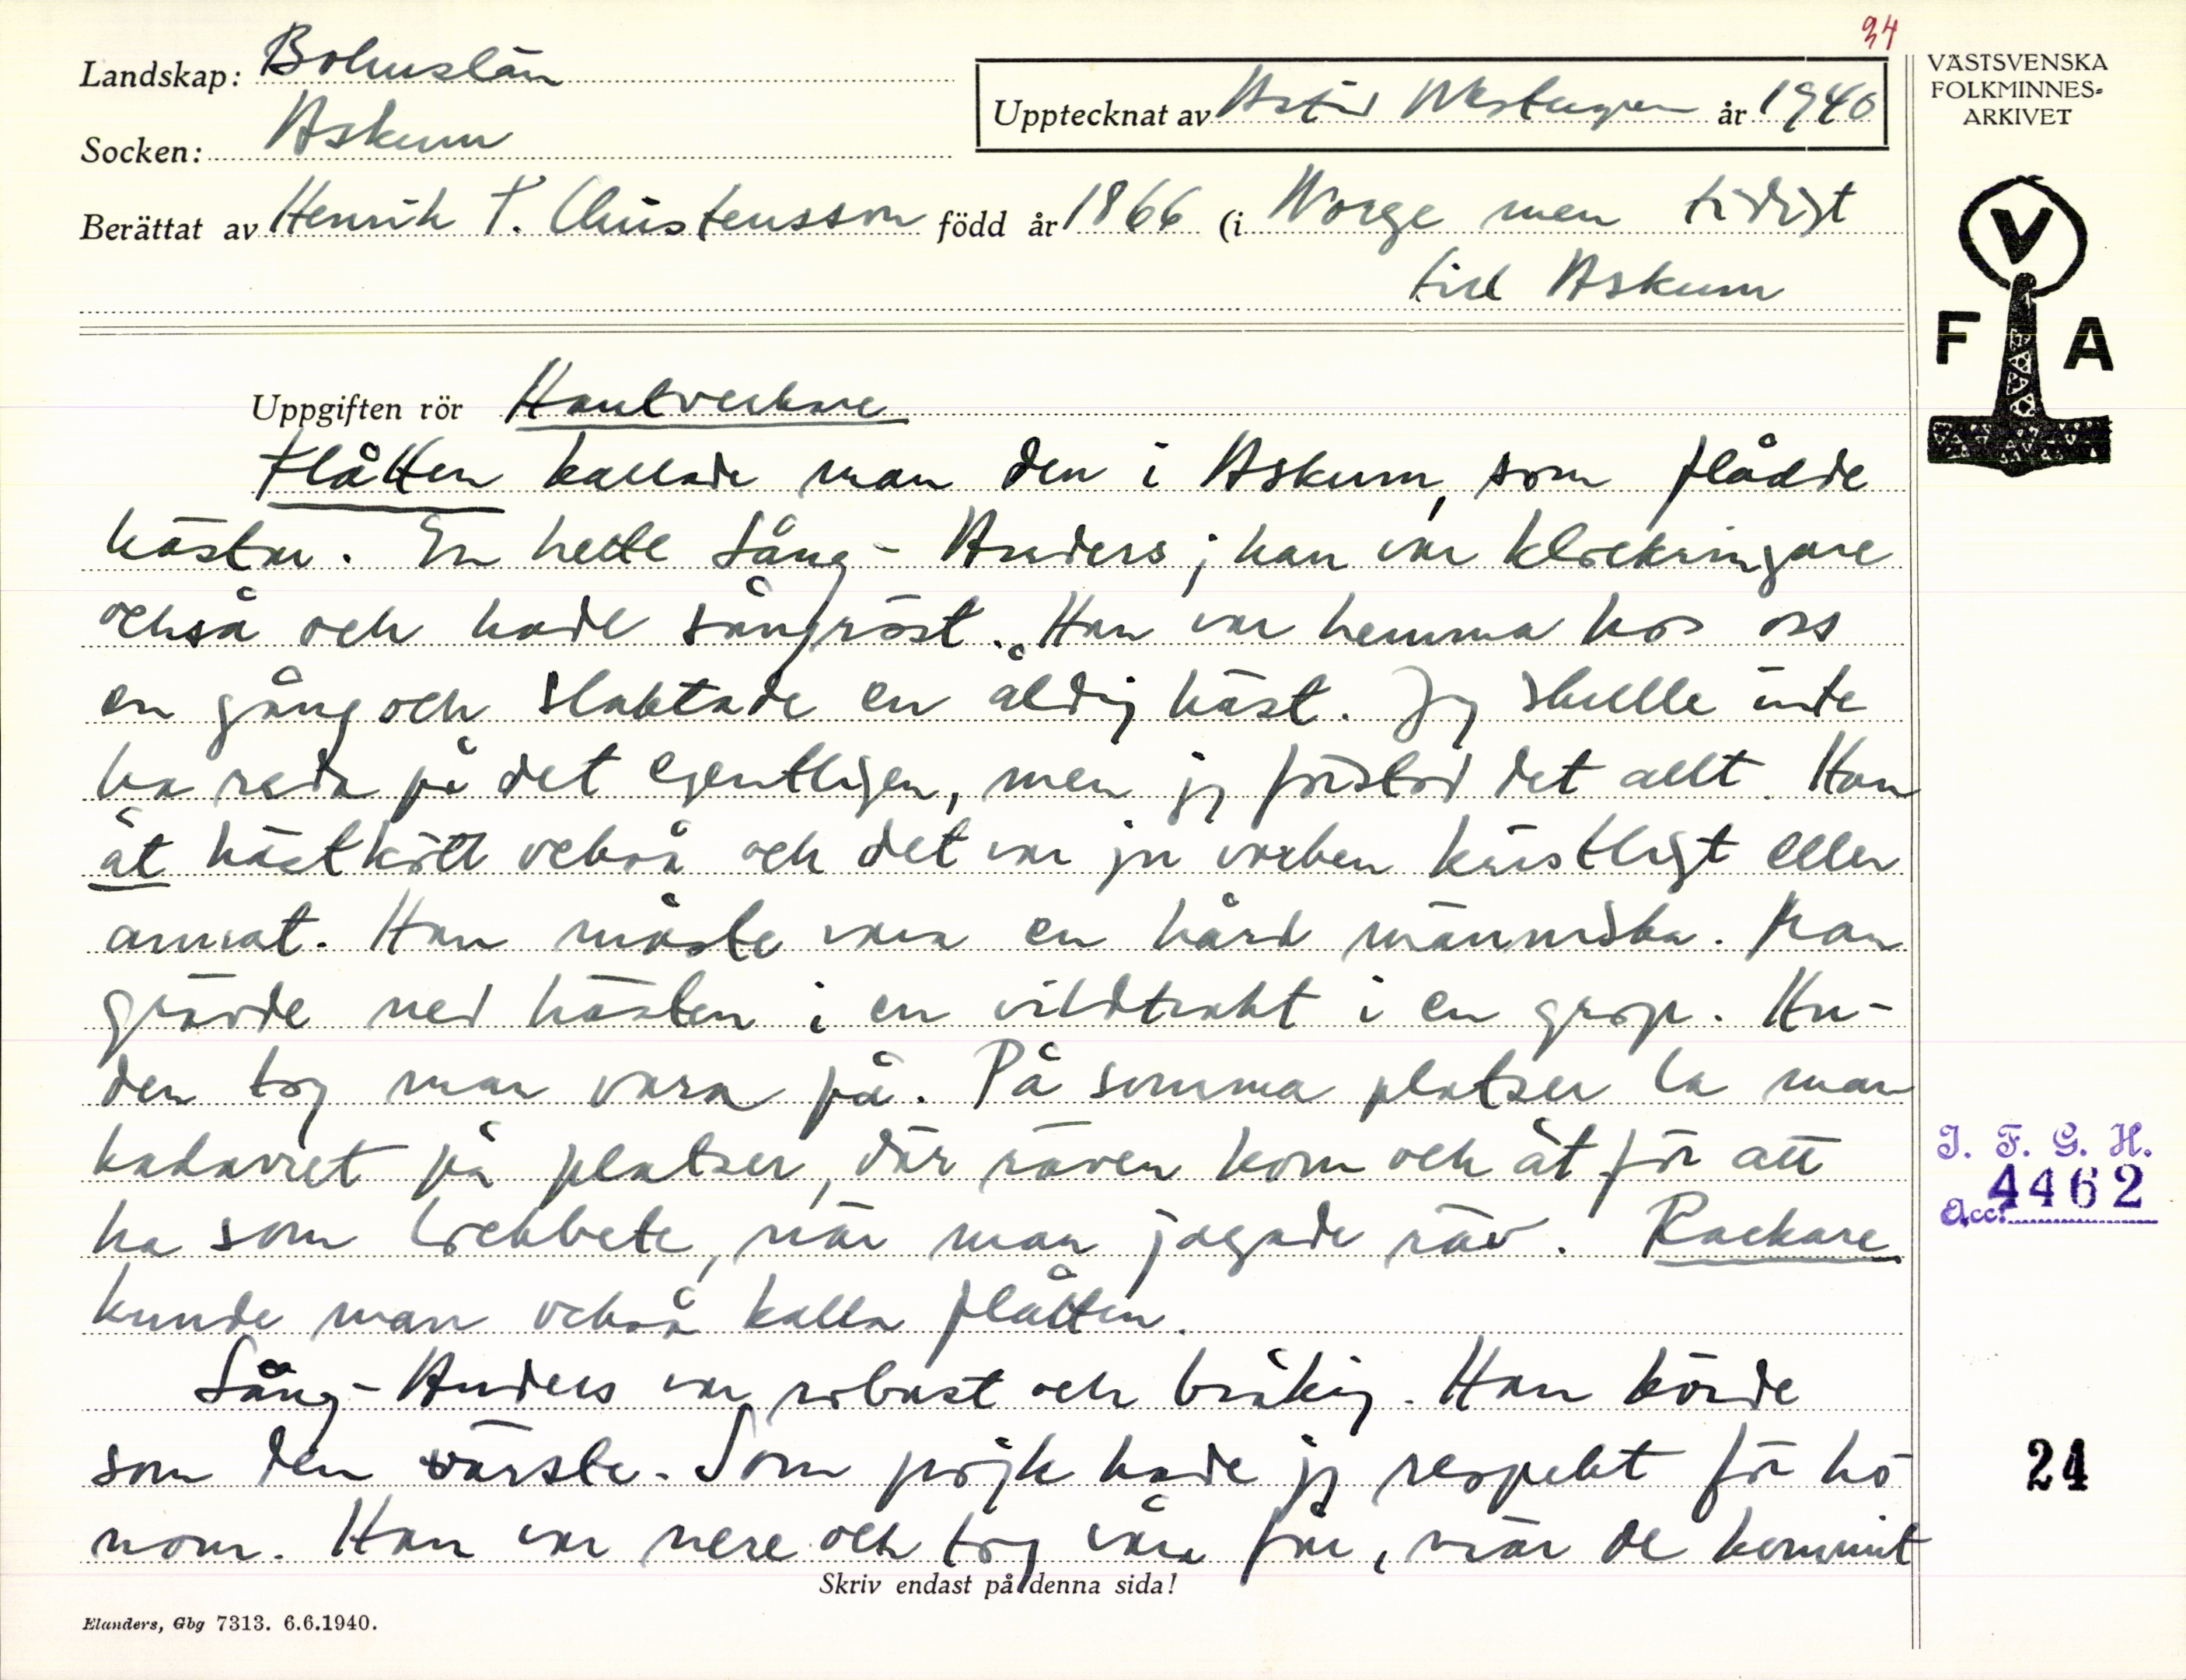 34
Landskap: Bohuslän
Socken: Askum
Upptecknat av Astrid Westergren år 1940
Berättat av Henrik T. Christensson född år 1866 (i Norge men tidigt
till Askum
VÄSTSVENSKA
FOLKMINNES-
ARKIVET
V
F A
Uppgiften rör Hantverkare
Flåtten kallade man den i Askum, som flådde
hästar. En hette Sång-Anders; han var klockringare
också och hade sångröst. Han var hemma hos oss
en gång och slaktade en åldrig häst. Jag skulle inte
ha reda på det egentligen, men jag förstod det allt. Han
åt hästkött också och det var ju varken kristligt eller
annat. Han måste vara en hård människa. Man
grävde ned hästen i en vildtrakt i en grop. Hu-
den tog man vara på. På somma platser la man
kadavret på platser, där räven kom och åt för att
ha som lockbete, när man jagade räv. Rackare
kunde man också kalla flåtten.
Sång-Anders var robust och bråkig. Han körde
som den värste. Som pojk hade jag respekt för ho
nom. Han var nere och tog våra får, när de kommit
I. F. G. H.
Acc. 4462
24
Skriv endast på denna sida!
Elanders, Gbg 7313. 6.6.1940.